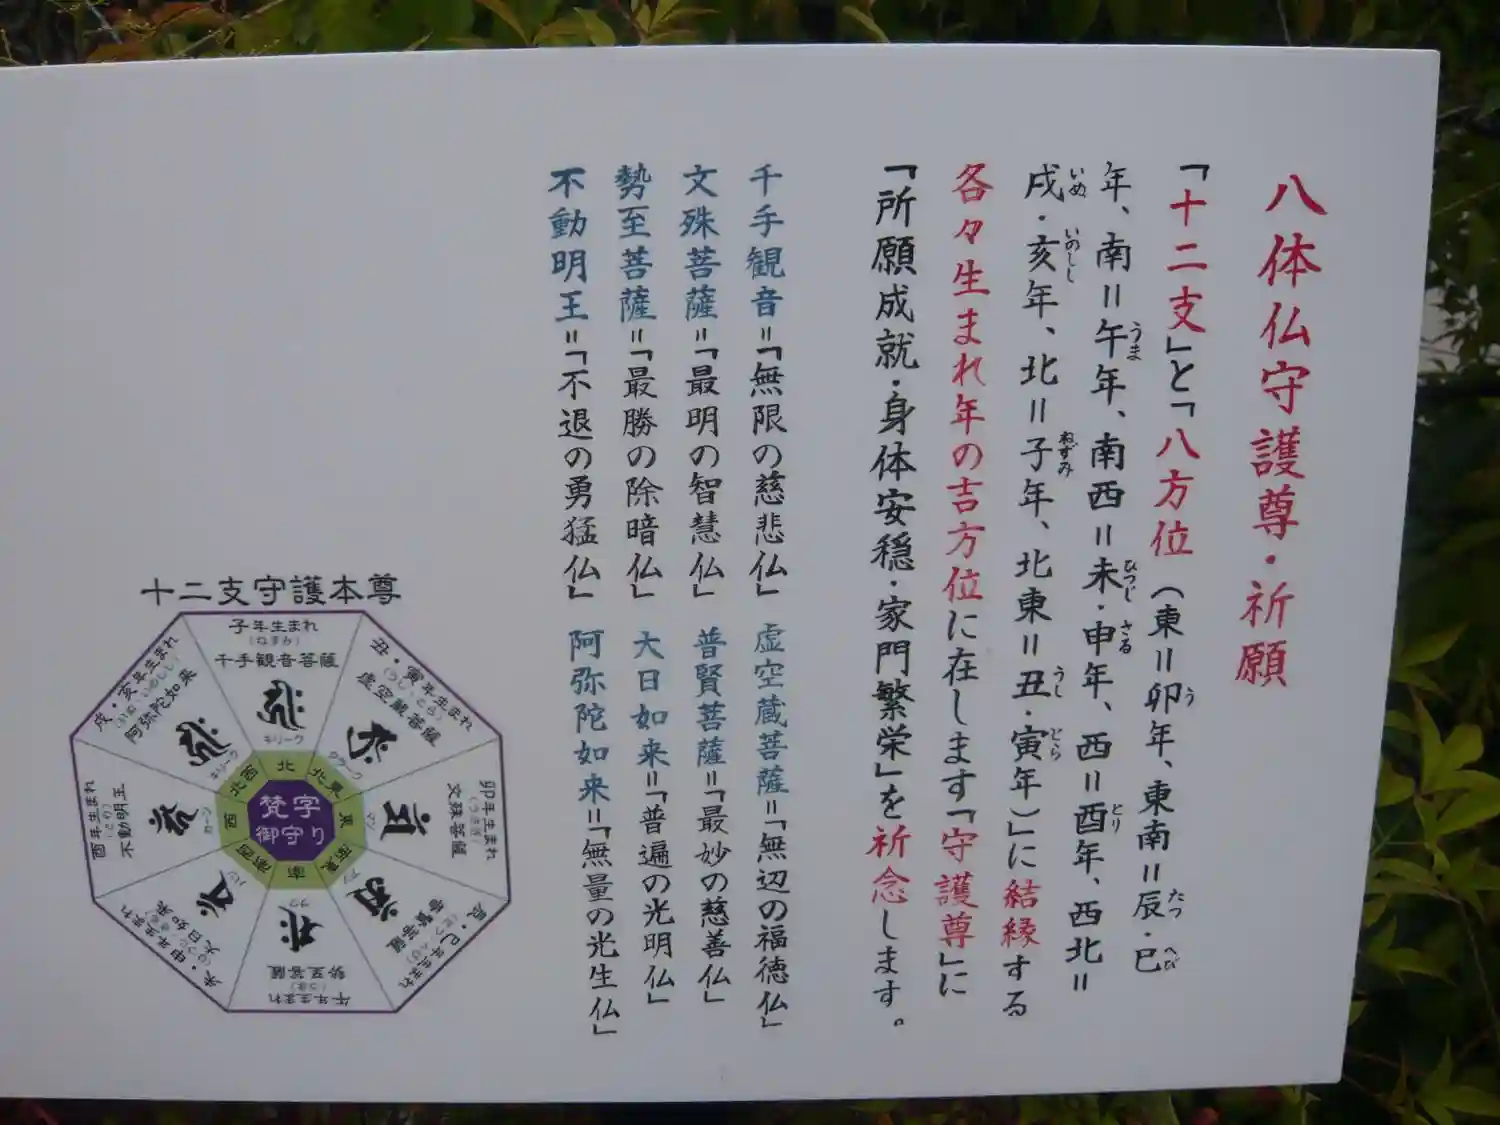 八体仏守護尊・祈願
「十二支」と「八方位（東＝卯年、東南＝辰・巳
う
たつ
へび
年、南＝午年、南西＝未・申年、西＝酉年、西北＝
うま
ひつじ
さる
とり
戌・亥年、北＝子年、北東＝丑・寅年）」に結縁する
いぬ
いのしし
ねずみ
うし
とら
各々生まれ年の吉方位に在します「守護尊」に
「所願成就・身体安穏・家門繁栄」を祈念します。
千手観音＝「無限の慈悲仏」 虚空蔵菩薩＝「無辺の福徳仏」
文殊菩薩＝「最明の智慧仏」 普賢菩薩＝「最妙の慈善仏」
勢至菩薩＝「最勝の除暗仏」 大日如来＝「普遍の光明仏」
不動明王＝「不退の勇猛仏」 阿弥陀如来＝「無量の光生仏」
十二支守護本尊
子年生まれ
（ねずみ）
千手観音菩薩
キリーク
北
丑・寅年生まれ
（うし・とら）
虚空蔵菩薩
タラーク
北東
卯年生まれ
（うさぎ）
文殊菩薩
マン
東
辰・巳年生まれ
普賢菩薩
アン
南東
午年生まれ
（うま）
勢至菩薩
サク
南
未・申年生まれ
大日如来
バン
南西
酉年生まれ
（とり）
不動明王
カーン
西
戌・亥年生まれ
（いぬ・いのしし）
阿弥陀如来
キリーク
北西
梵字
御守り